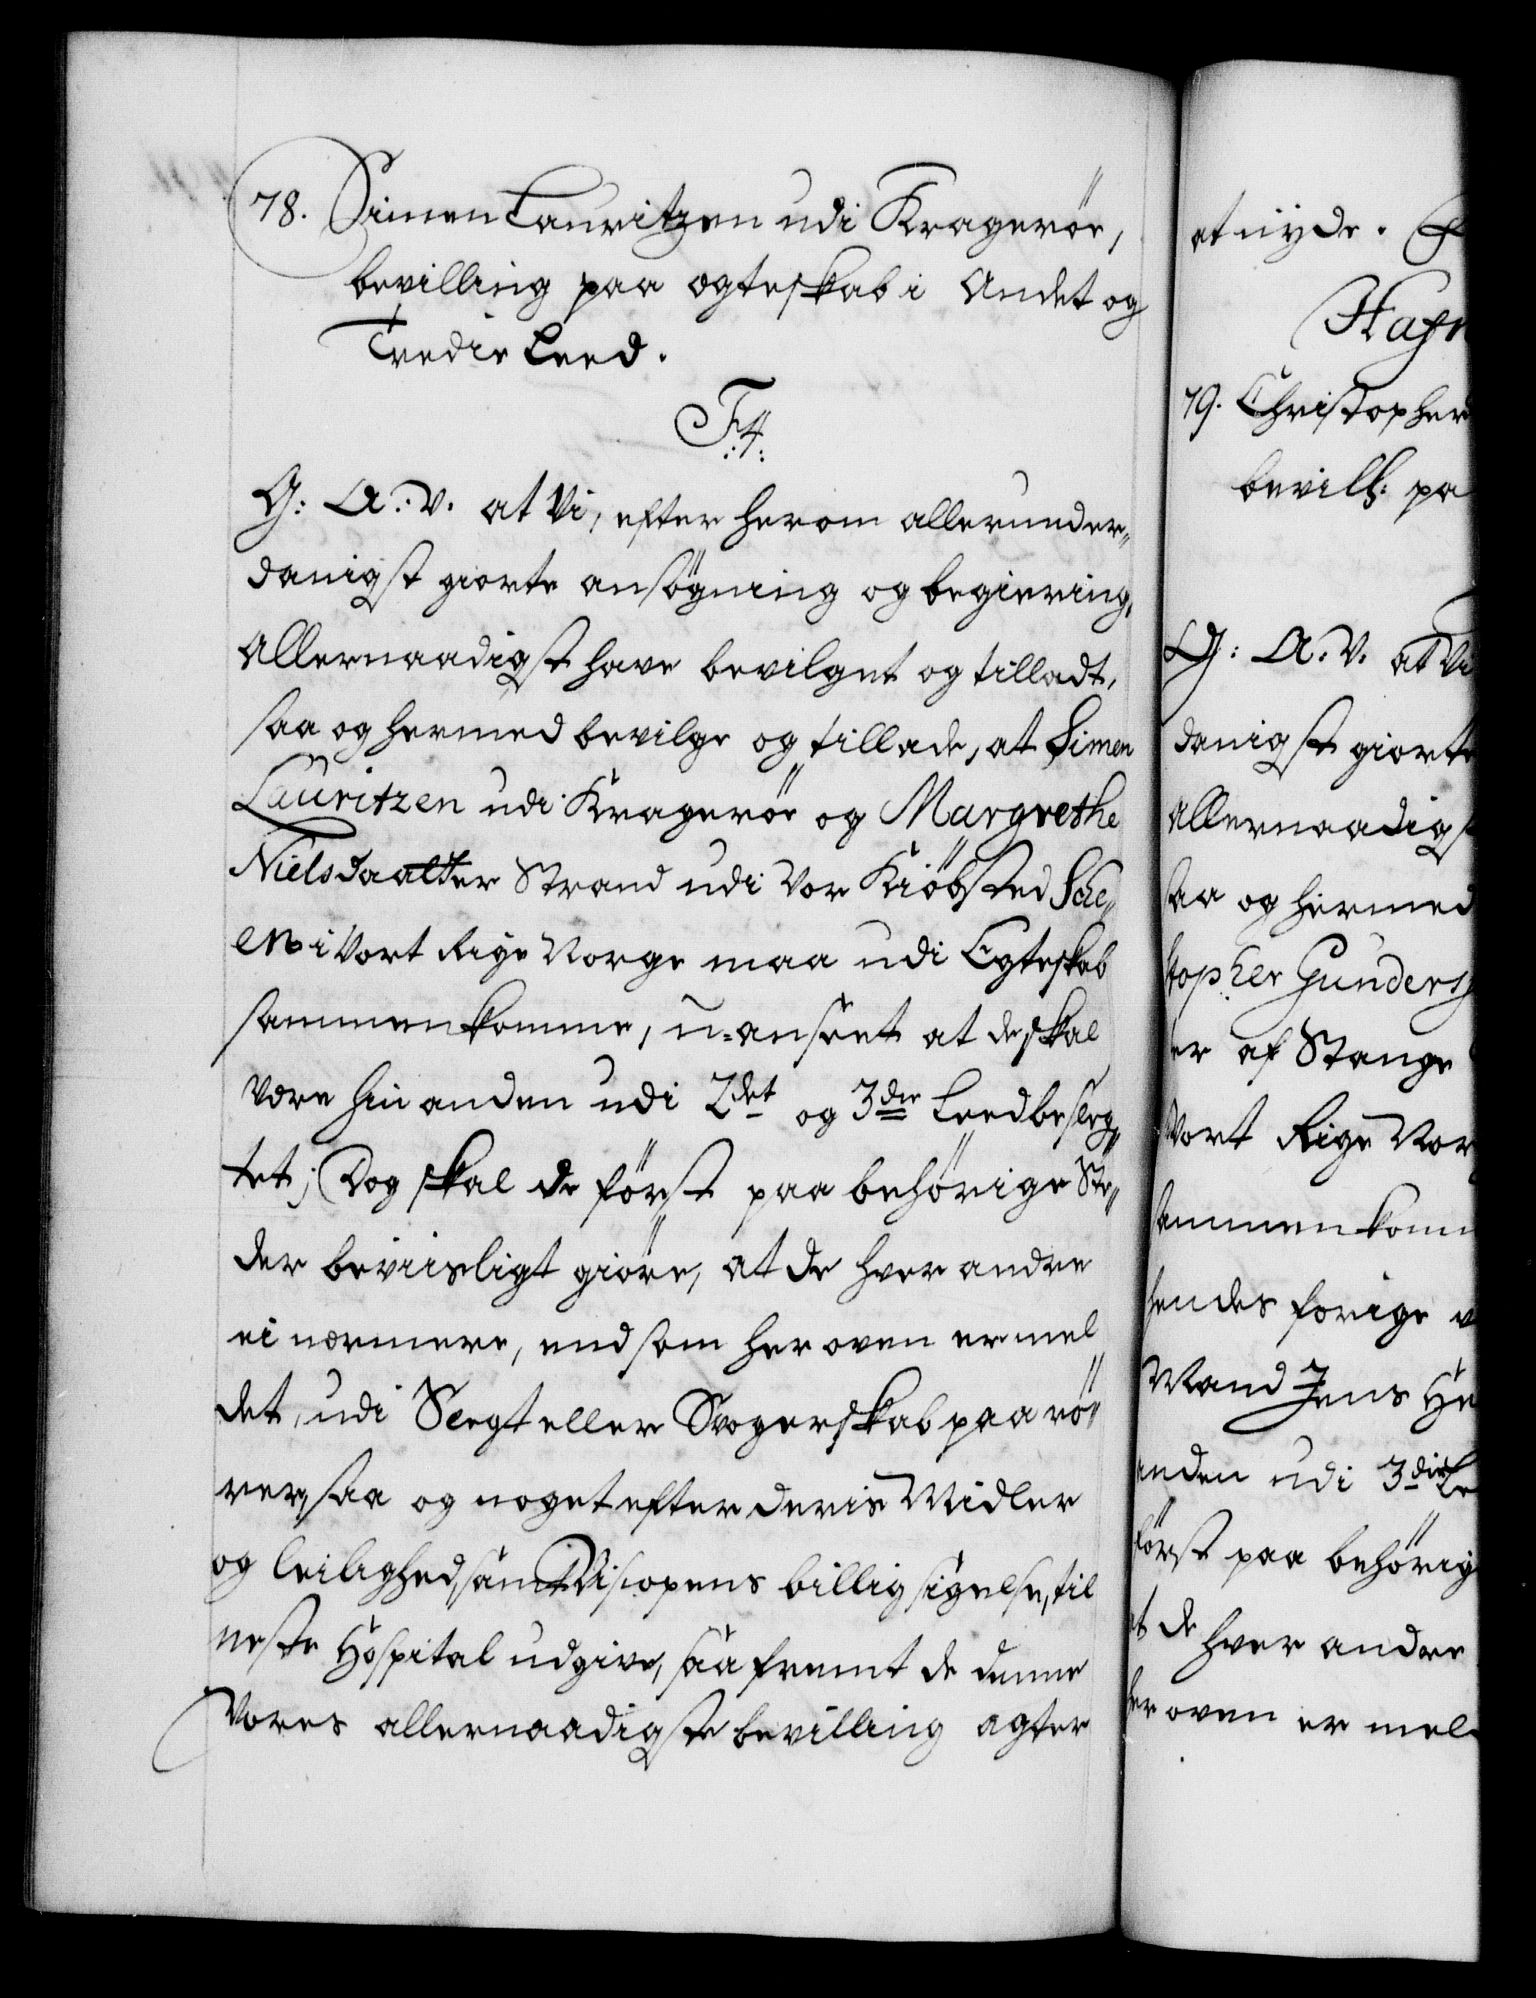 78. Simen Lauritzen udi Kragerøe,
bevilling paa ægteskab i Andet og
Tredie Leed.
F:4:
G: A: V. at Vi, efter herom allerunder„
danigst giorte ansøgning og begiering,
Allernaadigst have bevilget og tilladt,
saa og hermed bevilge og tillade, at Simen
Lauritzen udi Kragerøe og Margrethe
Nielsdaatter Strand udi Vor Kiøbsted Sche„
en i Vort Rige Norge maa udi Egteskab
sammenkomme, u-anseet at de skal
være hinanden udi 2det og 3die Leed beslæg„
tet; Dog skal de først paa behørige Ste„
der beviisligt giøre, at de hver andre
ei nærmere, end som her oven er mel„
det, udi Slegt eller Svogerskab paarø„
rer, saa og noget efter deris Midler
og leilighed, samt Biscopens billig sigelse, til
neste Hospital udgive, saafremt de denne
Vores allernaadigste bevilling agter
at nyde.
Hafn
79. Christopher
bevill: pa
G: A. V. at Vi
danigst giorte
Allernaadigs
saa og hermed
stopher Gunders
er af Stange
Vort Rige Nor
sammenkom
hendes forige
Mand Jens He
anden udi 3die Le
først paa behørig
at de hver andre
her oven er mel